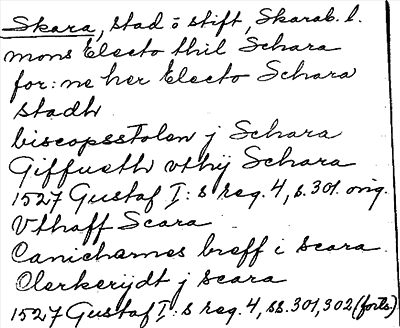 Skara, stad o stift, Skarab. l.
mons Electo thil Schara
for: ne her Electo Schara
stadh
biscopsstolen j Schara
Giffueth vthij Schara
1527 Gustaf I: s reg. 4, s. 301. orig.
Vthaff Scara
Canicharnes breff i scara
Clerkerijdt j scara
1527 Gustaf I: s reg. 4, ss. 301, 302 (forts.)